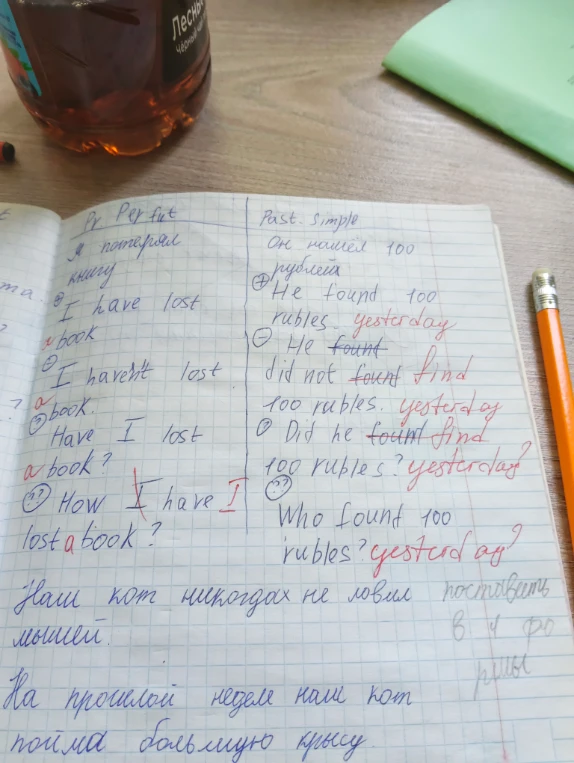 Лесны
Чёрный
Pr Perfect
Я потерял
книгу
+ I have lost
a book
- I haven't lost
a book.
? Have I lost
a book?
?? How I have I
lost a book?
Past. Simple
Он нашёл 100
рублей
+ He found 100
rubles. yesterday
- He found
did not found find
100 rubles. yesterday
? Did he found find
100 rubles? yesterday?
??
Who found 100
rubles? yesterday?
Наш кот никогдах не ловил
мышей.
поставить
в 4 фо
рмы
На прошлой неделе наш кот
пойма большую крысу.